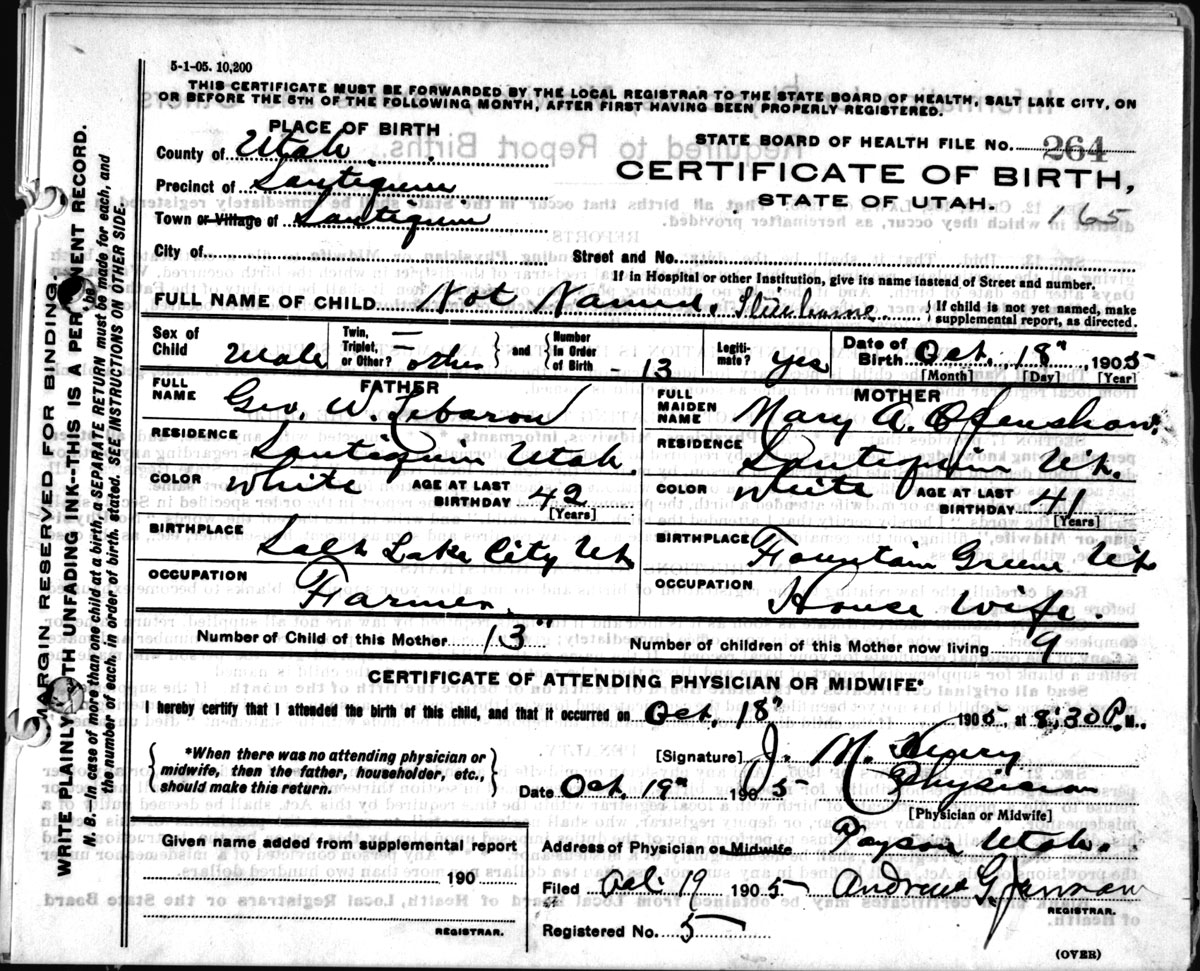 5-1-05. 10,200
THIS CERTIFICATE MUST BE FORWARDED BY THE LOCAL REGISTRAR TO THE STATE BOARD OF HEALTH, SALT LAKE CITY, ON
OR BEFORE THE 5TH OF THE FOLLOWING MONTH, AFTER FIRST HAVING BEEN PROPERLY REGISTERED.
PLACE OF BIRTH
STATE BOARD OF HEALTH FILE No. 264
County of Utah
CERTIFICATE OF BIRTH,
Precinct of Santiquin
STATE OF UTAH. 165
Town or Village of Santiquin
City of
Street and No.
If in Hospital or other Institution, give its name instead of Street and number.
FULL NAME OF CHILD Not Named. Stillborne
{If child is not yet named, make supplemental report, as directed.
Sex of Child Male
Twin, Triplet, or Other? — other
and {Number in Order of Birth - 13
Legitimate? yes
Date of Birth Oct. 18" 1905
[Month] [Day] [Year]
FATHER
FULL NAME Geo. W. Lebaron
RESIDENCE Santiquin Utah.
COLOR White
AGE AT LAST BIRTHDAY 42
[Years]
BIRTHPLACE Salt Lake City Ut
OCCUPATION Farmer.
MOTHER
FULL MAIDEN NAME Mary A. Olenshaw.
RESIDENCE Santiquin Ut.
COLOR White
AGE AT LAST BIRTHDAY 41
[Years]
BIRTHPLACE Fountain Greene Ut
OCCUPATION House wife.
Number of Child of this Mother 13"
Number of children of this Mother now living 9
CERTIFICATE OF ATTENDING PHYSICIAN OR MIDWIFE*
I hereby certify that I attended the birth of this child, and that it occurred on Oct, 18" 1905, at 8:30 P.M.
{*When there was no attending physician or
midwife, then the father, householder, etc.,
should make this return.}
[Signature] J. M.
Physician
Date Oct. 19" 1905
[Physician or Midwife]
Address of Physician or Midwife Payson Utah.
Given name added from supplemental report
190
REGISTRAR.
Filed Oct. 19 1905
Andrew G. Jenson
REGISTRAR.
Registered No. 5
(OVER)
MARGIN RESERVED FOR BINDING.
WRITE PLAINLY WITH UNFADING INK--THIS IS A PERMANENT RECORD.
N. B.—In case of more than one child at a birth, a SEPARATE RETURN must be made for each, and
the number of each, in order of birth, stated. SEE INSTRUCTIONS ON OTHER SIDE.